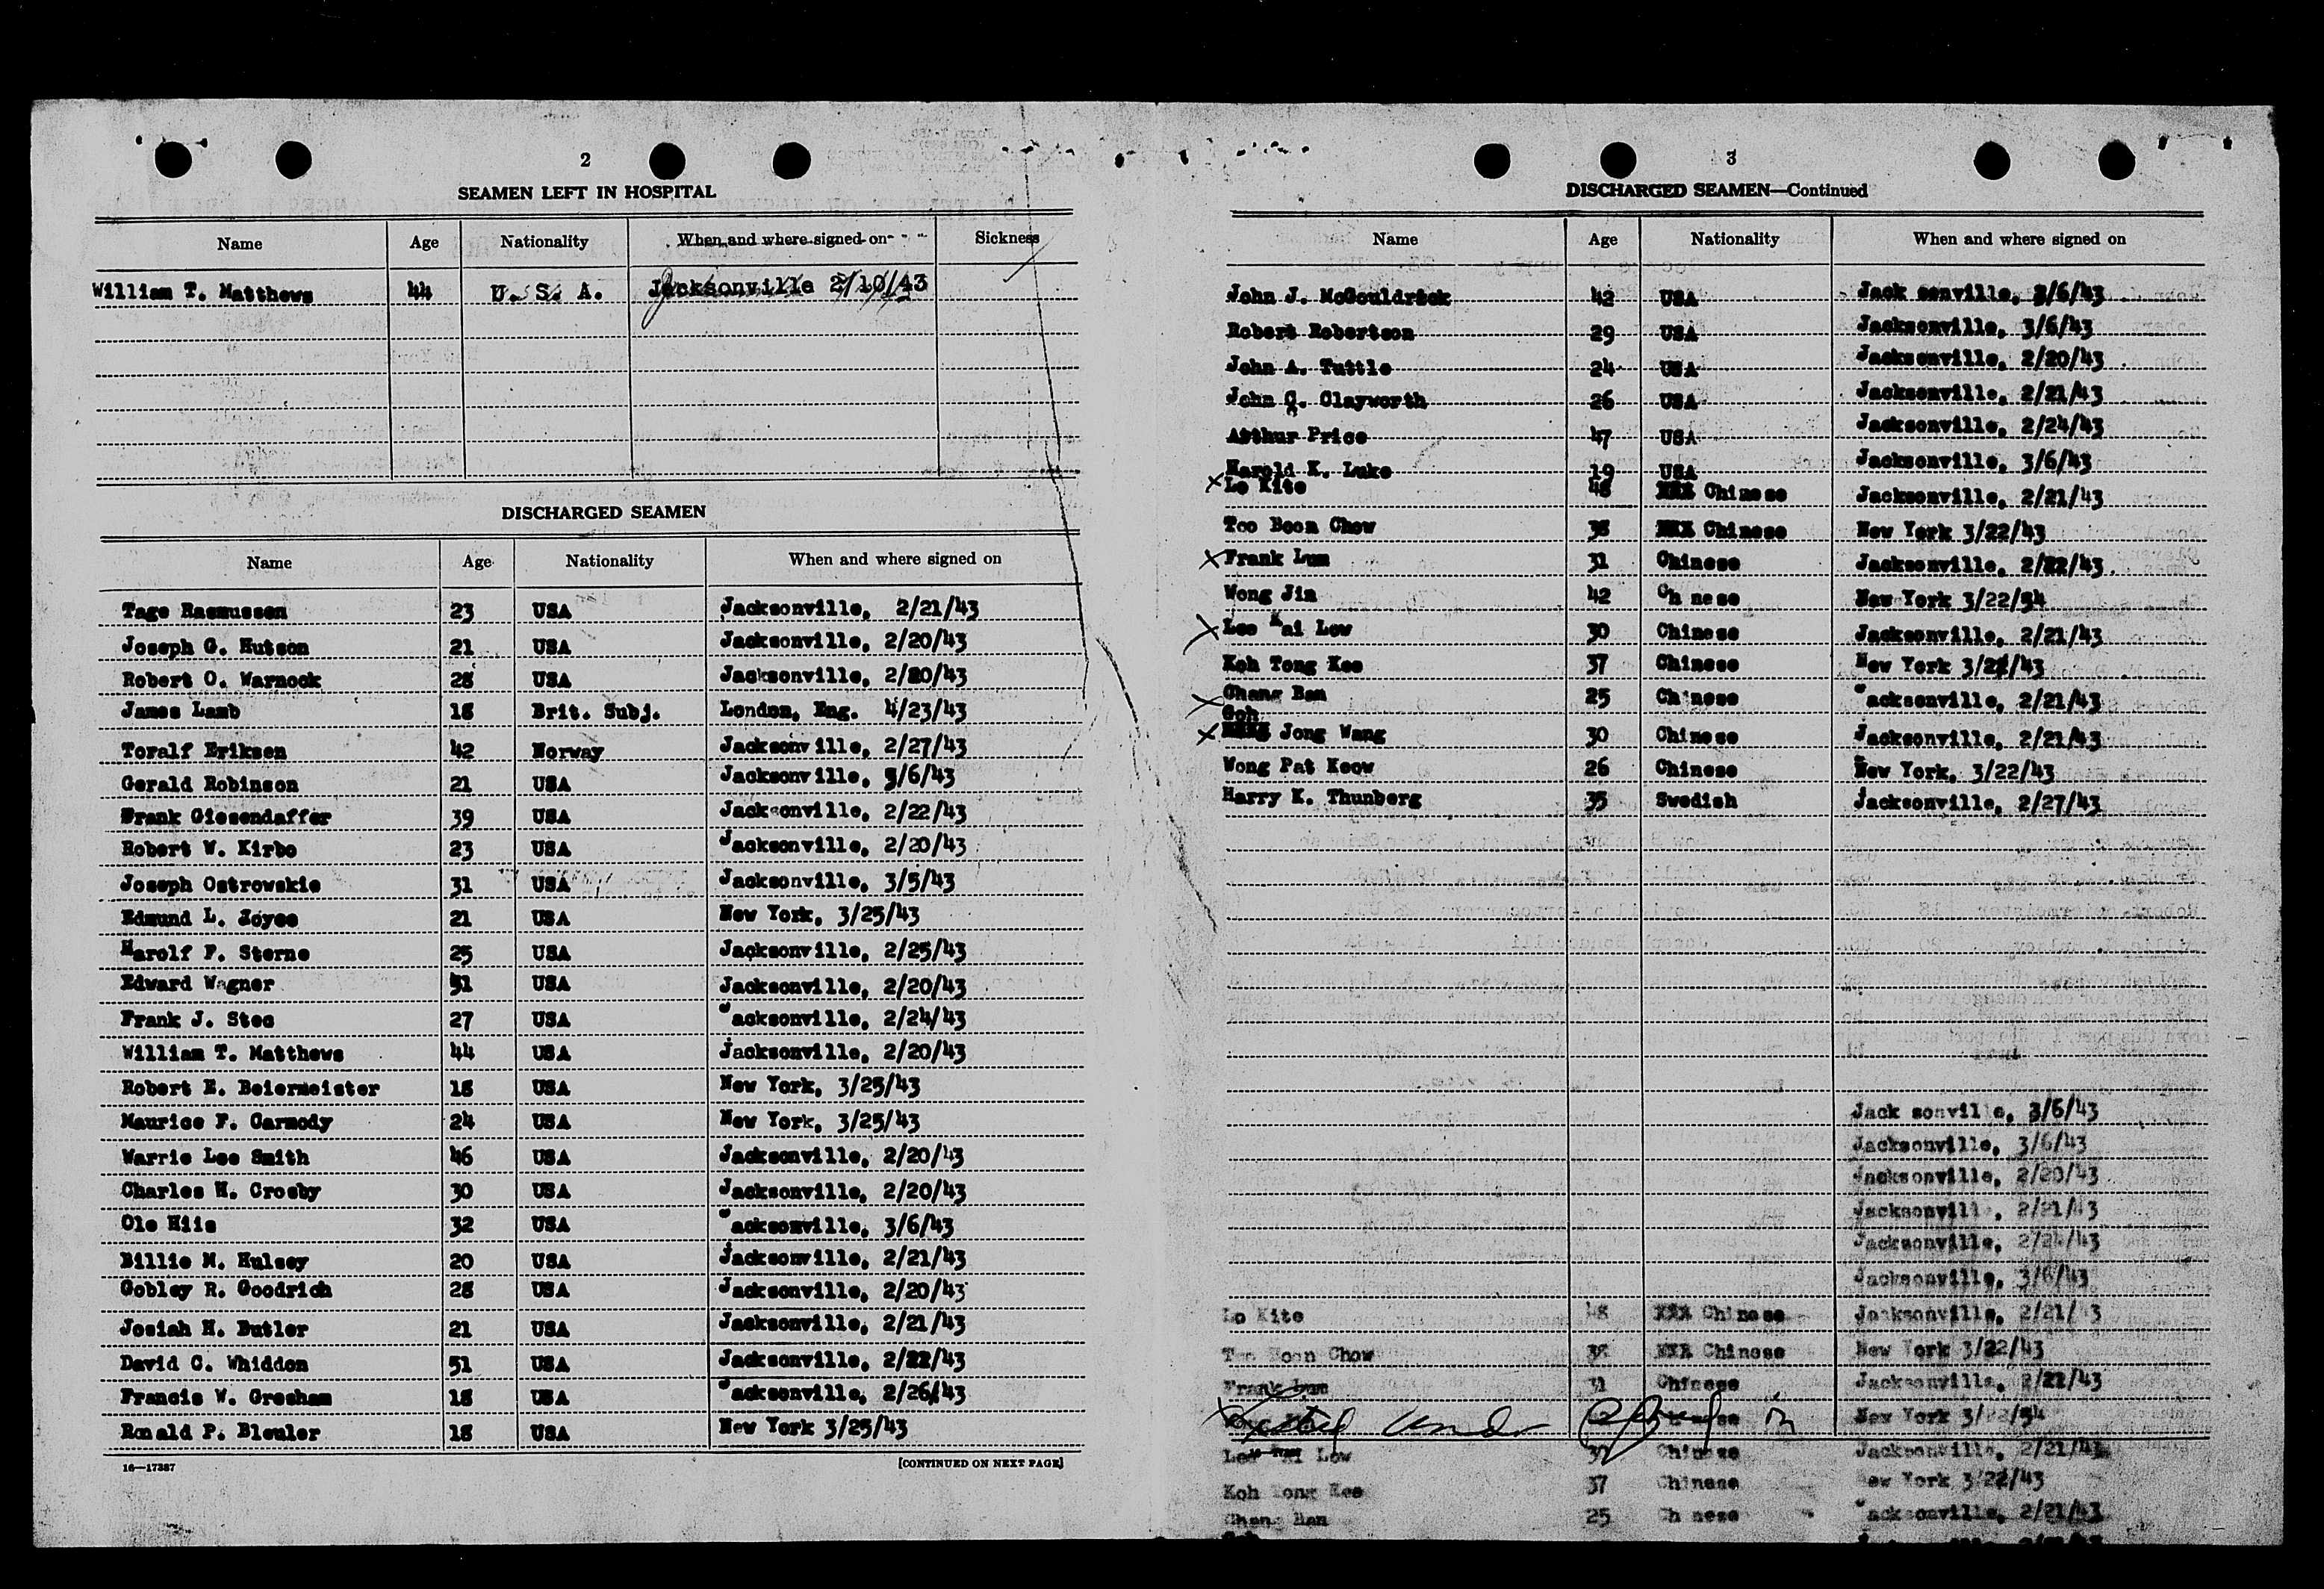 2
SEAMEN LEFT IN HOSPITAL
Name Age Nationality When and where signed on Sickness
William T. Matthews 44 U. S. A. Jacksonville 2/10/43
DISCHARGED SEAMEN
Name Age Nationality When and where signed on
Tage Rasmussen 23 USA Jacksonville, 2/21/43
Joseph G. Hutson 21 USA Jacksonville, 2/20/43
Robert O. Warnock 28 USA Jacksonville, 2/20/43
James Lamb 18 Brit. Subj. London, Eng. 4/23/43
Toralf Eriksen 42 Norway Jacksonville, 2/27/43
Gerald Robinson 21 USA Jacksonville, 3/6/43
Frank Giesendaffer 39 USA Jacksonville, 2/22/43
Robert W. Kirbo 23 USA Jacksonville, 2/20/43
Joseph Ostrowskie 31 USA Jacksonville, 3/5/43
Edmund L. Joyce 21 USA New York, 3/25/43
Harolf F. Sterne 25 USA Jacksonville, 2/25/43
Edward Wagner 51 USA Jacksonville, 2/20/43
Frank J. Stec 27 USA Jacksonville, 2/24/43
William T. Matthews 44 USA Jacksonville, 2/20/43
Robert E. Beiermeister 18 USA New York, 3/25/43
Maurice F. Carmody 24 USA New York, 3/25/43
Warrie Lee Smith 46 USA Jacksonville, 2/20/43
Charles H. Crosby 30 USA Jacksonville, 2/20/43
Ole Hiis 32 USA Jacksonville, 3/6/43
Billie M. Hulsey 20 USA Jacksonville, 2/21/43
Gobley R. Goodrich 28 USA Jacksonville, 2/20/43
Josiah H. Butler 21 USA Jacksonville, 2/21/43
David C. Whiddon 51 USA Jacksonville, 2/22/43
Francis W. Gresham 18 USA Jacksonville, 2/26/43
Ronald P. Bleuler 18 USA New York 3/25/43
16—17387 [CONTINUED ON NEXT PAGE]
3
DISCHARGED SEAMEN—Continued
Name Age Nationality When and where signed on
John J. McGouldrick 42 USA Jack sonville, 3/6/43
Robert Robertson 29 USA Jacksonville, 3/6/43
John A. Tuttle 24 USA Jacksonville, 2/20/43
John C. Clayworth 26 USA Jacksonville, 2/21/43
Arthur Price 47 USA Jacksonville, 2/24/43
Harold K. Luke 19 USA Jacksonville, 3/6/43
X Lo Kite 48 XXX Chinese Jacksonville, 2/21/43
Too Boon Chow 38 XXX Chinese New York 3/22/43
X Frank Lum 31 Chinese Jacksonville, 2/22/43
Wong Jin 42 Ch nese New York 3/22/54
X Lee Kai Low 30 Chinese Jacksonville, 2/21/43
Koh Tong Kee 37 Chinese New York 3/22/43
X Chang Ban 25 Ch nese Jacksonville, 2/21/43
Goh
X Jong Wang 30 Chinese Jacksonville, 2/21/43
Wong Pat Keow 26 Chinese New York, 3/22/43
Harry K. Thunberg 35 Swedish Jacksonville, 2/27/43
Jack sonville, 3/6/43
Jacksonville, 3/6/43
Jacksonville, 2/20/43
Jacksonville, 2/21/43
Jacksonville, 2/24/43
Jacksonville, 3/6/43
Lo Kite 48 XXX Chinese Jacksonville, 2/21/43
Too Boon Chow 38 XXX Chinese New York 3/22/43
Frank Lum 31 Chinese Jacksonville, 2/22/43
New York 3/22/54
Lee Kai Low 30 Chinese Jacksonville, 2/21/43
Koh Tong Kee 37 Chinese New York 3/22/43
Chang Ban 25 Ch nese Jacksonville, 2/21/43